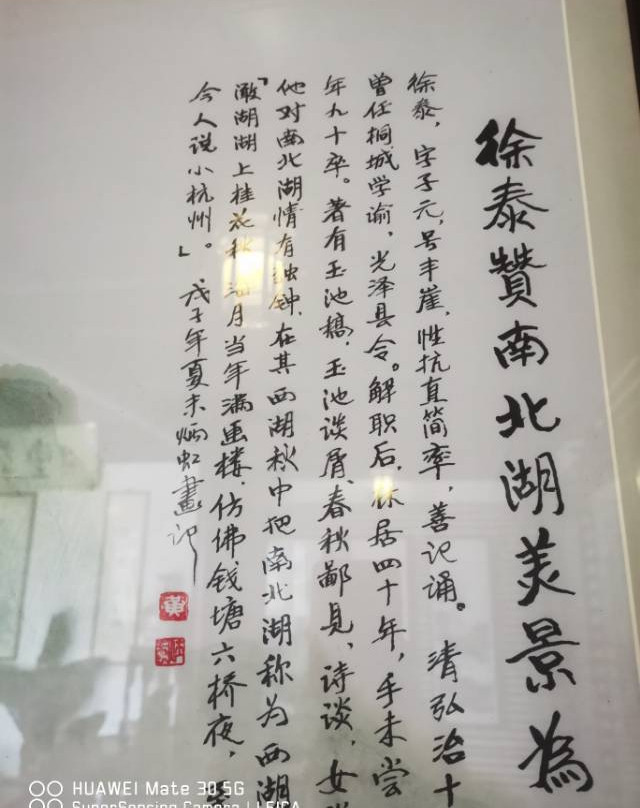 徐泰贊南北湖美景為
徐泰,字子元,号丰崖,性抗直简率,善记诵。清弘治十
曾任桐城学谕,光泽县令。解职后,林居四十年,手未尝
年九十卒。著有玉池稿,玉池谈屑、春秋鄙见,诗谈,女
他对南北湖情有独钟,在其西湖秋中把南北湖称为西湖
「澉湖湖上桂花秋,海月当年满画楼。仿佛钱塘六桥夜,
今人说小杭州。」戊子年夏末炳虹畫记
黄
HUAWEI Mate 30 5G
SuperSensing Camera | LEICA